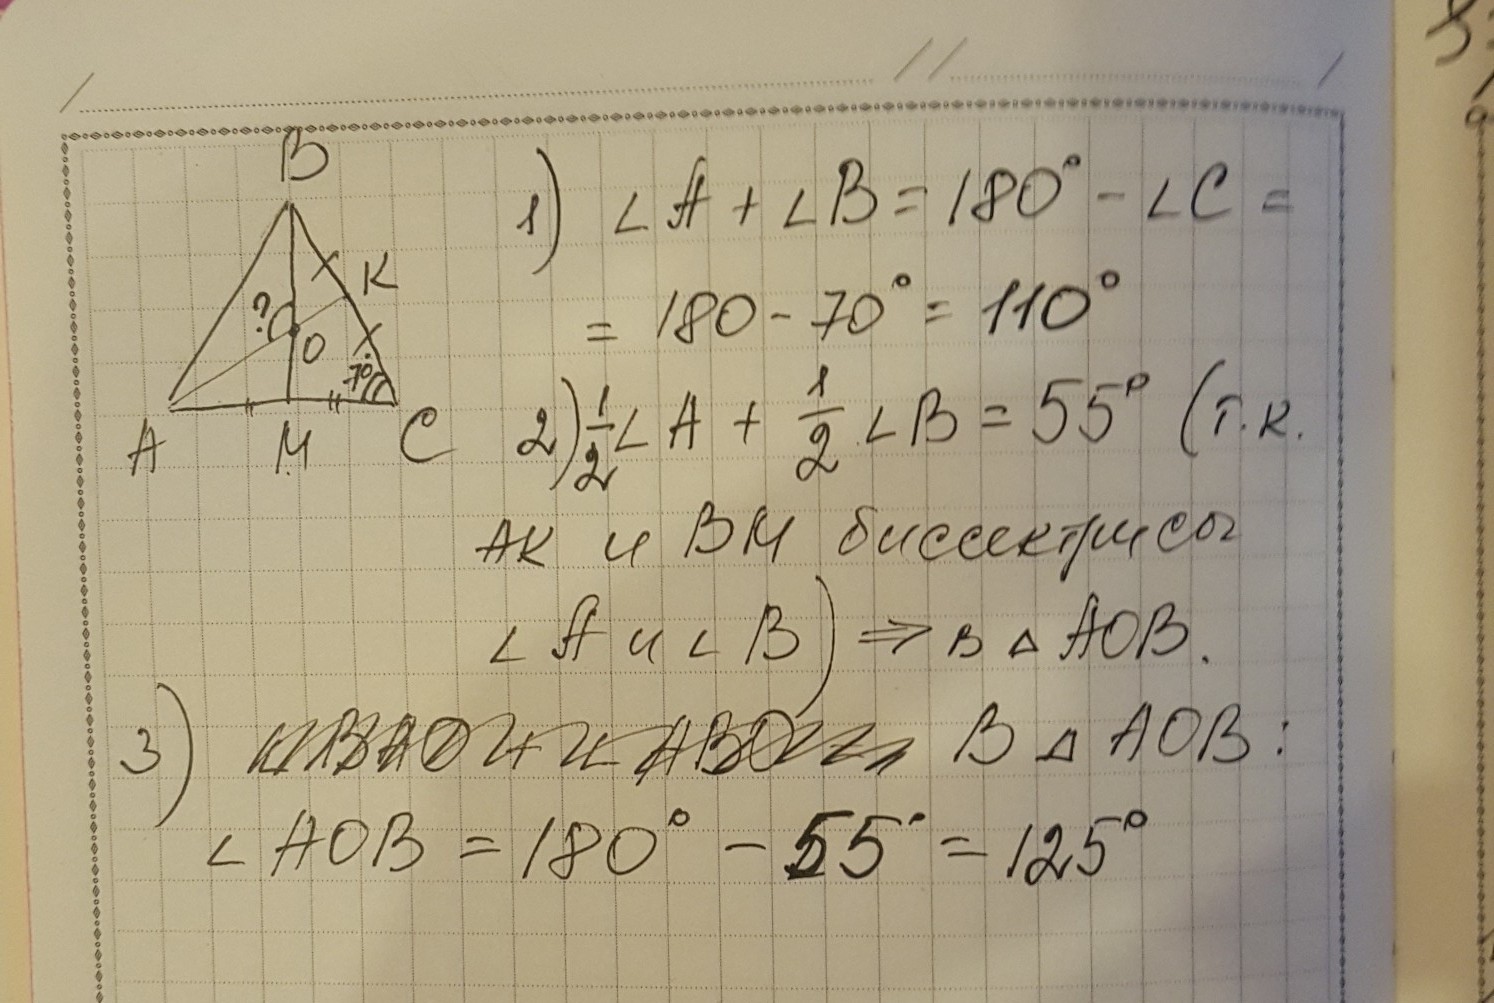 B
K
?
O
70°
A
M
C
1) ∠A + ∠B = 180° - ∠C =
= 180 - 70° = 110°
2) 1/2 ∠A + 1/2 ∠B = 55° (т.к.
AK и BM биссектрисы
∠A и ∠B) ⇒ в △ AOB.
3) В △ AOB:
∠AOB = 180° - 55° = 125°